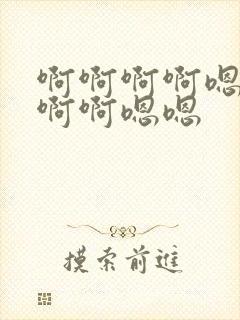 啊啊啊啊嗯
啊啊嗯嗯
摸索前進